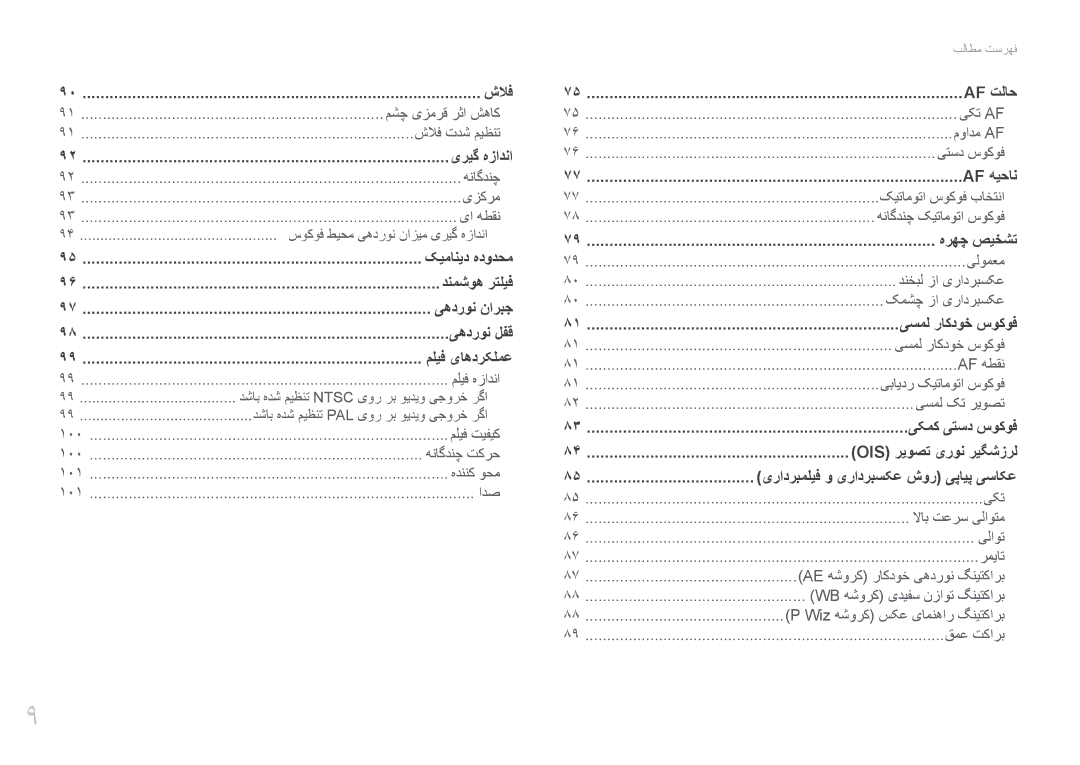 فهرست مطالب
حالت AF ........ ۷۵
AF تکی ........ ۷۵
AF مداوم ........ ۷۶
فوکوس دستی ........ ۷۶
ناحیه AF ........ ۷۷
انتخاب فوکوس اتوماتیک ........ ۷۷
فوکوس اتوماتیک چندگانه ........ ۷۸
تشخیص چهره ........ ۷۹
معمولی ........ ۷۹
عکسبرداری از لبخند ........ ۸۰
عکسبرداری از چشمک ........ ۸۰
فوکوس خودکار لمسی ........ ۸۱
فوکوس خودکار لمسی ........ ۸۱
نقطه AF ........ ۸۱
ردیابی فوکوس اتوماتیک ........ ۸۱
تصویر تک لمسی ........ ۸۲
فوکوس دستی کمکی ........ ۸۳
لرزشگیر نوری تصویر (OIS) ........ ۸۴
عکاسی پیاپی (روش عکسبرداری و فیلمبرداری) ........ ۸۵
تکی ........ ۸۵
متوالی سرعت بالا ........ ۸۶
توالی ........ ۸۶
تایمر ........ ۸۷
براکتینگ نوردهی خودکار (کروشه AE) ........ ۸۷
براکتینگ توازن سفیدی (کروشه WB) ........ ۸۸
براکتینگ راهنمای عکس (کروشه P Wiz) ........ ۸۸
براکت عمق ........ ۸۹
فلاش ........ ۹۰
کاهش اثر قرمزی چشم ........ ۹۱
تنظیم شدت فلاش ........ ۹۱
اندازه گیری ........ ۹۲
چندگانه ........ ۹۲
مرکزی ........ ۹۳
نقطه ای ........ ۹۳
اندازه گیری میزان نوردهی محیط فوکوس ........ ۹۴
محدوده دینامیک ........ ۹۵
فیلتر هوشمند ........ ۹۶
جبران نوردهی ........ ۹۷
قفل نوردهی ........ ۹۸
عملکردهای فیلم ........ ۹۹
اندازه فیلم ........ ۹۹
اگر خروجی ویدیو بر روی NTSC تنظیم شده باشد ........ ۹۹
اگر خروجی ویدیو بر روی PAL تنظیم شده باشد ........ ۹۹
کیفیت فیلم ........ ۱۰۰
حرکت چندگانه ........ ۱۰۰
محو کننده ........ ۱۰۱
صدا ........ ۱۰۱
۹